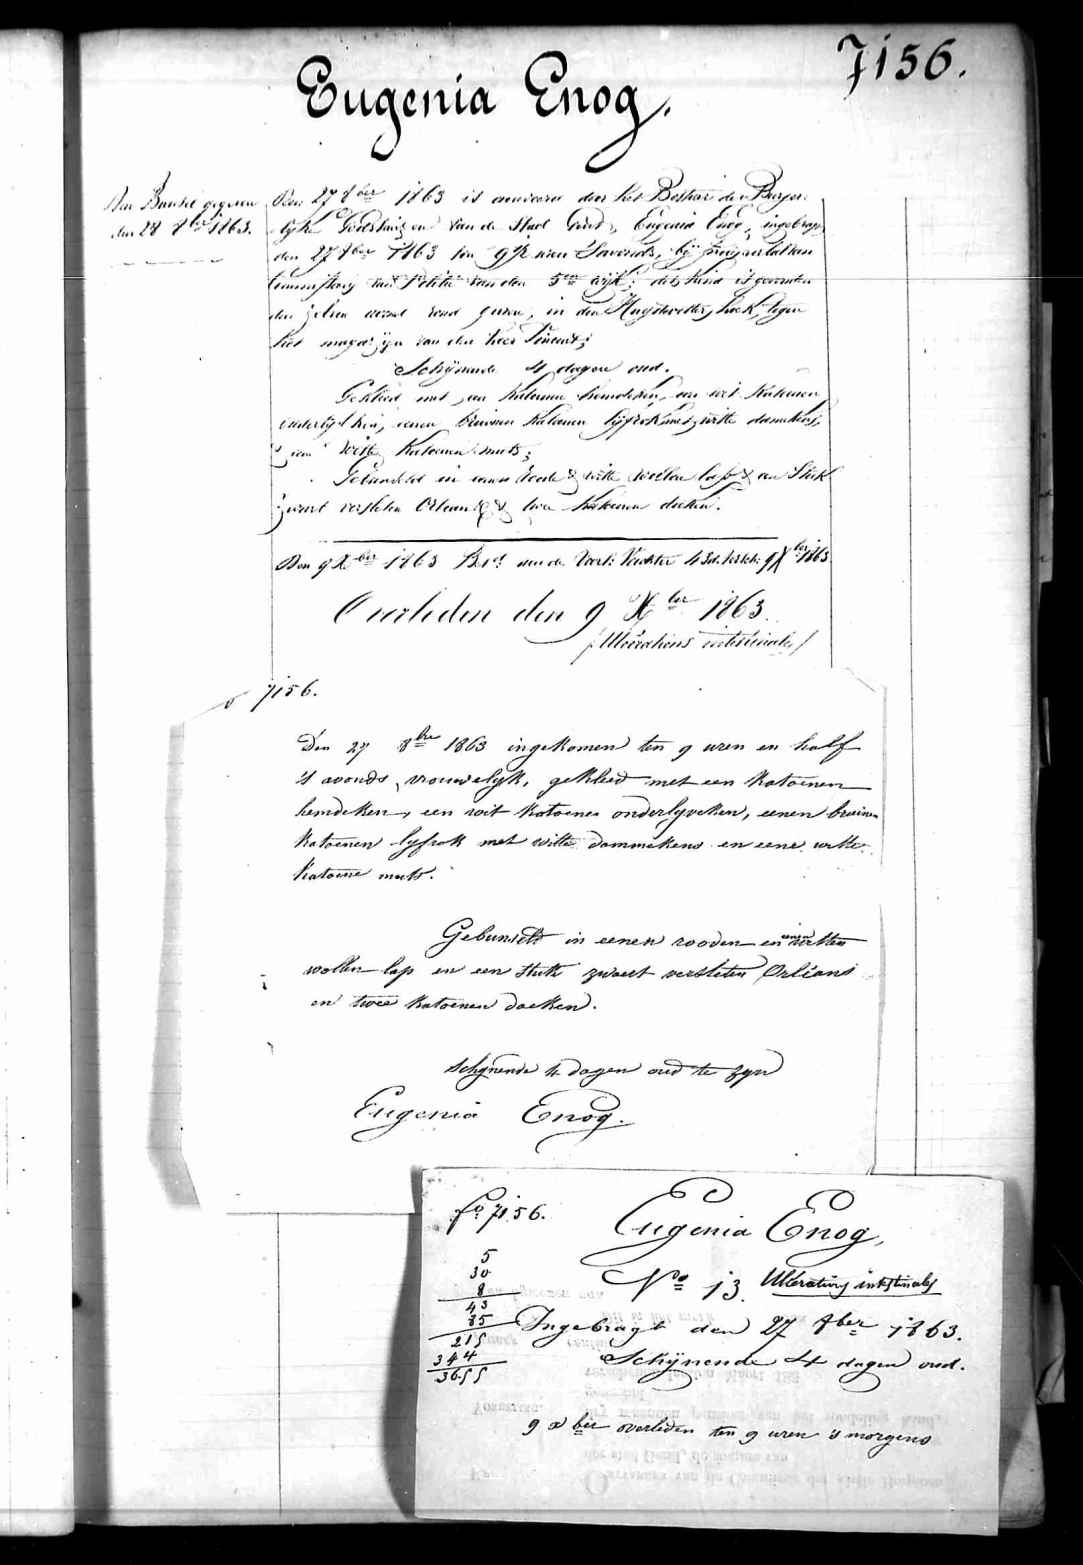 7156.
Eugenia Enog.
gegeven
den 28 8ber 1863.
Den 27 8ber 1863 is aanveerd door het Bestuur der Burger-
lyke Godshuizen van de Stad Gend, Eugenia Enog, ingebragt
den 27 8ber 1863 ten 9 ½ uren 's avonds, by procesverbal van
Commissaris van Politie van den 5en wyk; dit kind is gevonden
den zelven avond rond uren, in den Huydevettershoek, tegen
het magazyn van den heer
Schijnende 4 dagen oud.
Gekleed met een katoenen hemdeken, een wit katoenen
onderlyfken, eenen bruinen katoenen lyfrok met witte dammekens,
eene witte katoenen muts;
Gebunseld in eenen roode & witte wollen lap & een Stuk
zwart versleten Orleans & twee katoenen doeken.
Den 9 Xber 1863 aan de 9 Xber 1863
Overleden den 9 Xber 1863.
/Ulcérations intestinales/
7156.
Den 27 8bre 1863 ingekomen ten 9 uren en half
's avonds, vrouwelyk, gekleed met een katoenen
hemdeken, een wit katoenen onderlyveken, eenen bruinen
katoenen lyfrok met witte dammekens en eene witte
katoene muts.
Gebunseld in eenen rooden en eenen witten
wollen lap en een stuk zwart versleten Orléans
en twee katoenen doeken.
schynende 4 dagen oud te zyn
Eugenia Enog.
fo 7156.
Eugenia Enog,
5
30
8
43
85
215
344
3655
No 13. Ulcerations intestinales
Ingebragt den 27 8ber 1863.
Schijnende 4 dagen oud.
9 xber overleden ten 9 uren 's morgens